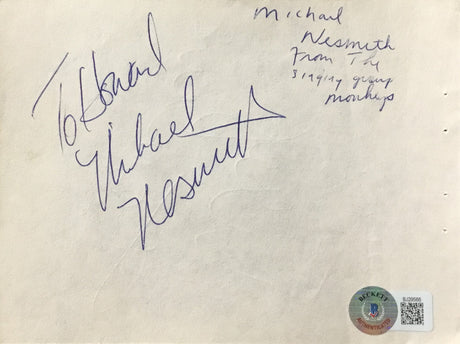 Michael
Nesmith
From The
singing group
monkeys
To Howard
Michael
Nesmith
BECKETT
B
AUTHENTICATED
BJ29565